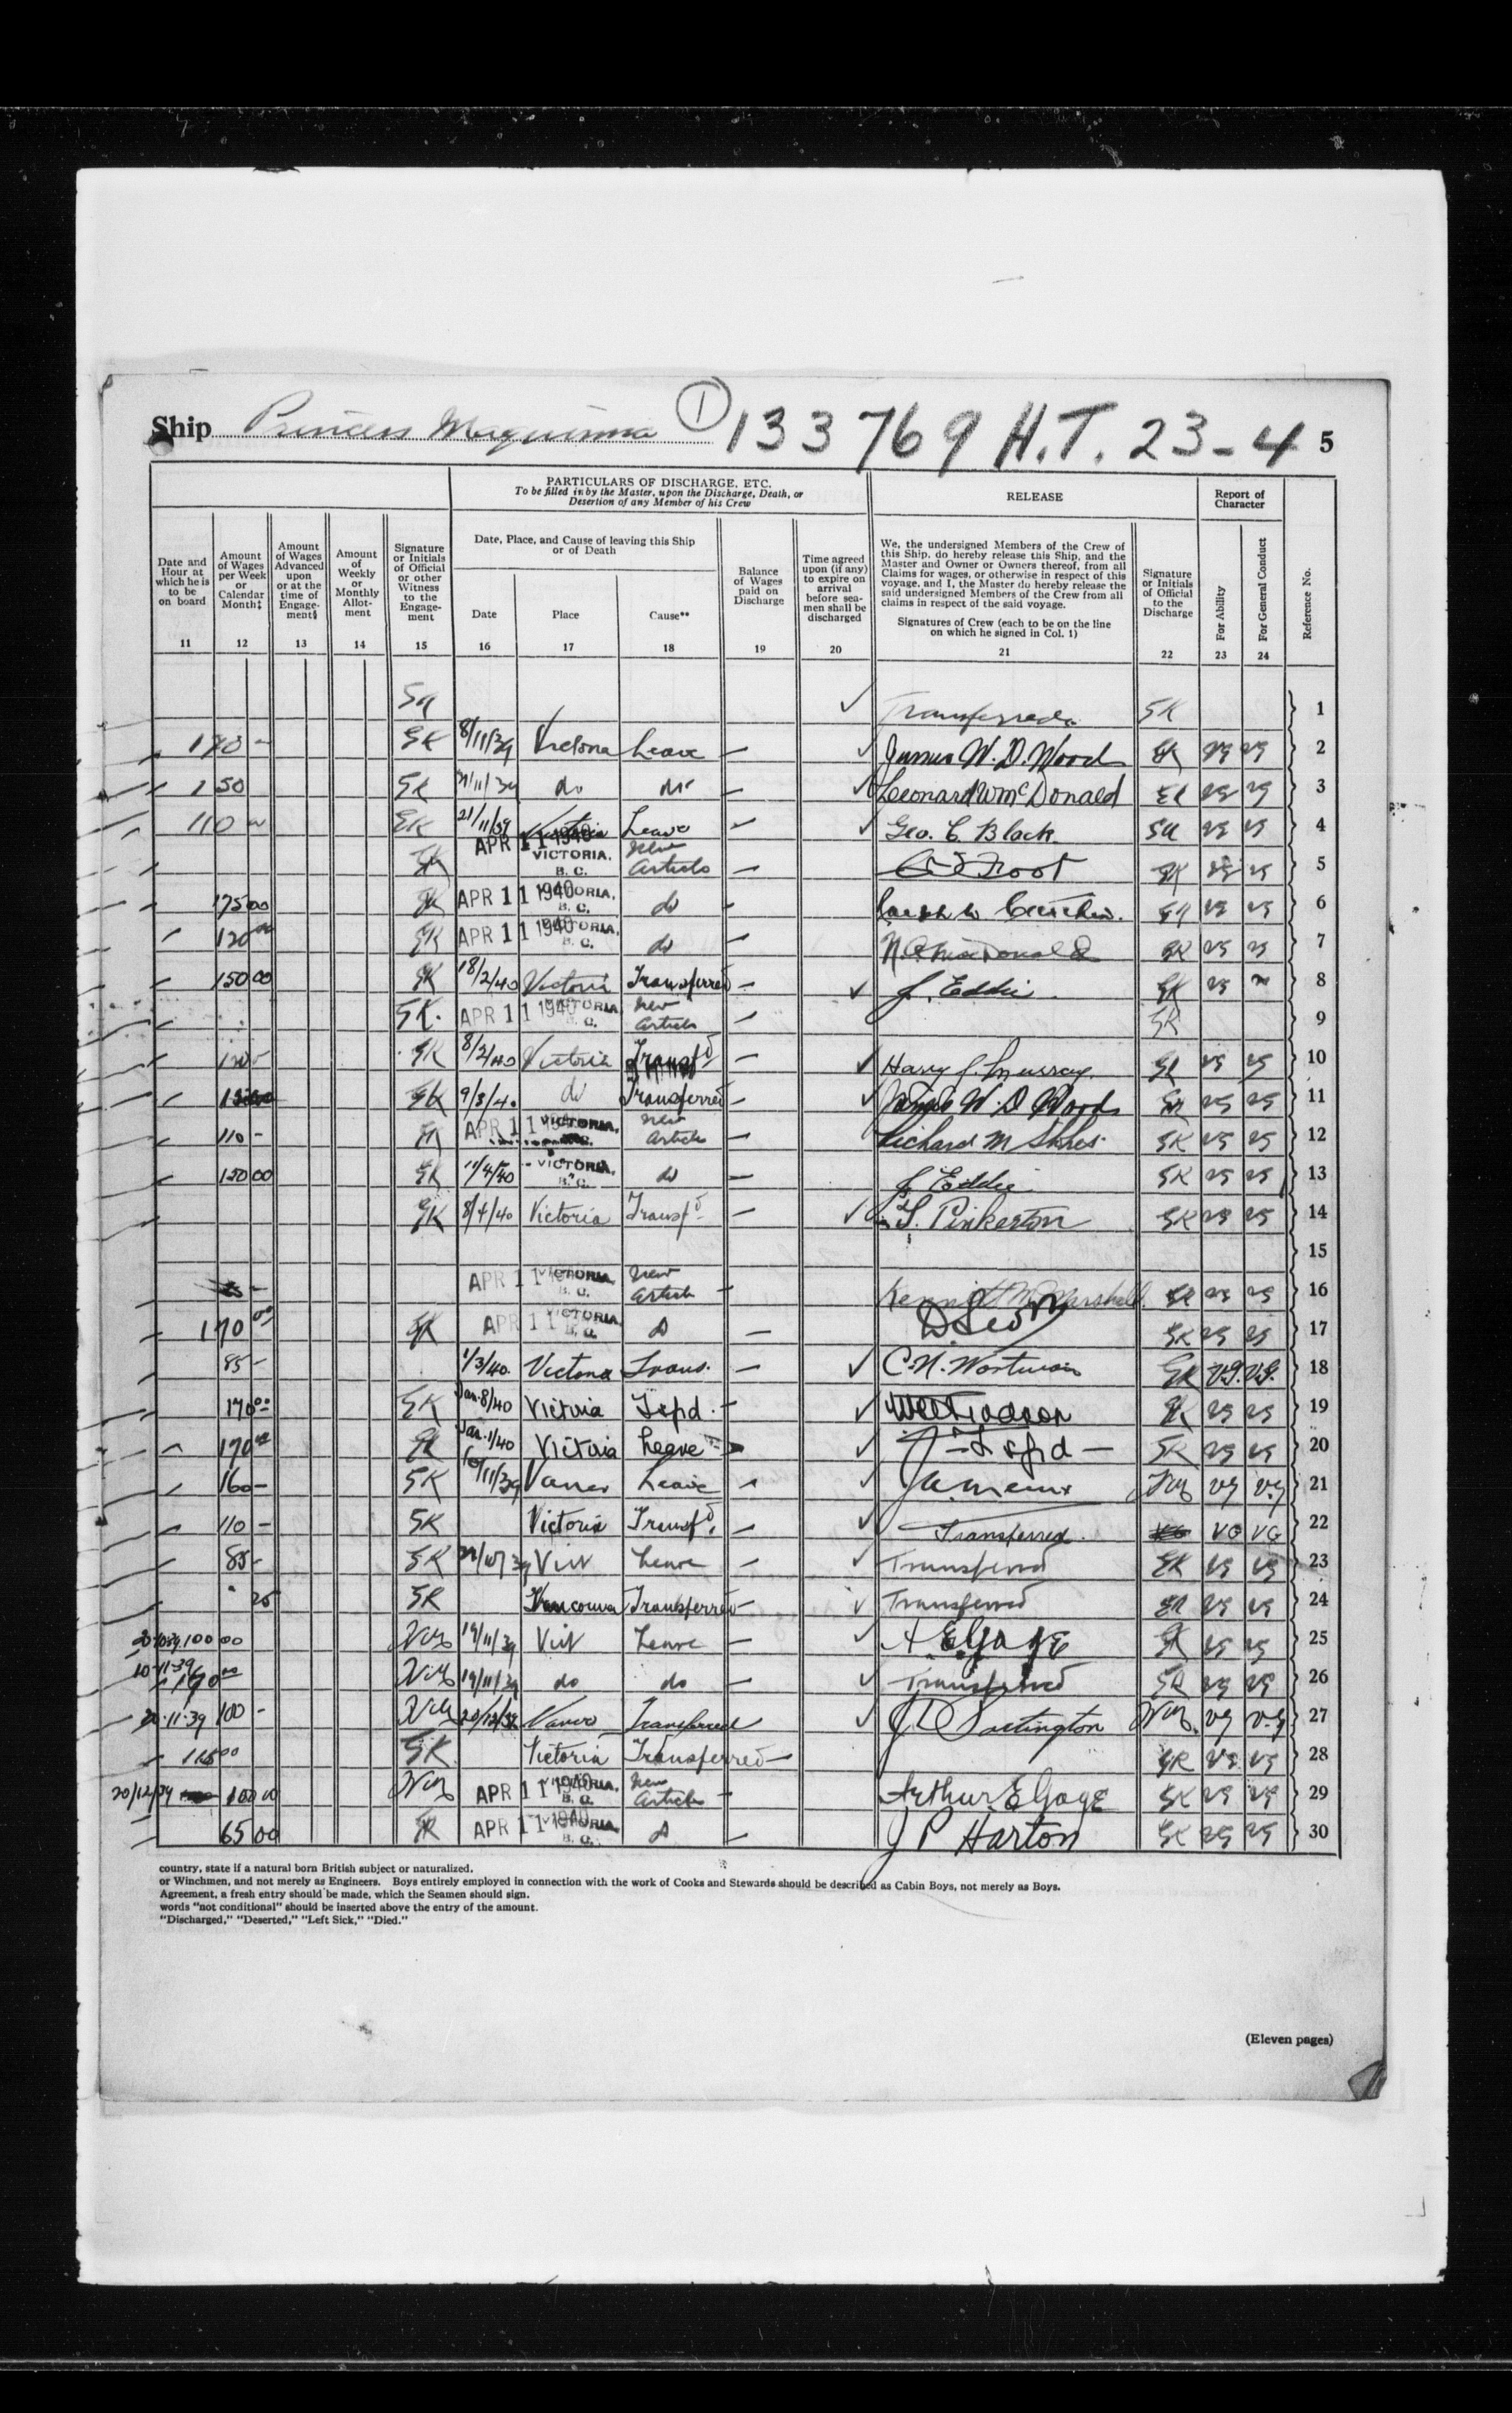 Ship Princess Maquinna 1 133769 H.T. 23-4 5
PARTICULARS OF DISCHARGE, ETC.
To be filled in by the Master, upon the Discharge, Death, or
Desertion of any Member of his Crew
RELEASE
Report of
Character
Date and
Hour at
which he is
to be
on board
Amount
of Wages
per Week
or
Calendar
Month‡
Amount
of Wages
Advanced
upon
or at the
time of
Engage-
ment§
Amount
of
Weekly
or
Monthly
Allot-
ment
Signature
or Initials
of Official
or other
Witness
to the
Engage-
ment
Date, Place, and Cause of leaving this Ship
or of Death
Date
Place
Cause**
Balance
of Wages
paid on
Discharge
Time agreed
upon (if any)
to expire on
arrival
before sea-
men shall be
discharged
We, the undersigned Members of the Crew of
this Ship, do hereby release this Ship, and the
Master and Owner or Owners thereof, from all
Claims for wages, or otherwise in respect of this
voyage, and I, the Master do hereby release the
said undersigned Members of the Crew from all
claims in respect of the said voyage.
Signatures of Crew (each to be on the line
on which he signed in Col. 1)
Signature
or Initials
of Official
to the
Discharge
For Ability
For General Conduct
Reference No.
11 12 13 14 15 16 17 18 19 20 21 22 23 24
Transferred SK 1
SK 8/11/39 Victoria Leave — James W. D. Wood SK vg vg 2
150 SK do do — Leonard W McDonald vg vg 3
110 SK 21/11/39 Victoria Leave — Geo. C. Black vg vg 4
SK APR 11 1940 VICTORIA, B. C. New Articles — Foot SK vg vg 5
175 00 SK APR 11 1940 VICTORIA, B. C. do — vg vg 6
120 00 SK APR 11 1940 VICTORIA, B. C. do — MacDonald SK vg vg 7
150 00 SK 18/2/40 Victoria Transferred — J. Eddie SK vg 8
SK APR 11 1940 VICTORIA B. C. New Articles — SK 9
SK 8/2/40 Victoria Transfd — Harry J. Murray SK vg vg 10
SK 9/3/40 do Transferred — James W. D Wood vg vg 11
110 - SK APR 11 VICTORIA, New Articles — Richard M SK vg vg 12
150 00 SK 11/4/40 VICTORIA, B. C. do — J Eddie SK vg vg 13
SK 8/4/40 Victoria Transfd — Pinkerton SK vg vg 14
15
APR 11 VICTORIA, B. C. New Articles — Kenneth M Marshall vg vg 16
170 00 SK APR 11 VICTORIA B. C. do — SK vg vg 17
85 - 1/3/40 Victoria Trans. — C. N. SK V.G. V.G. 18
170 00 SK Jan. 8/40 Victoria Tsfd. — SK vg vg 19
170 00 SK Jan. 1/40 Victoria Leave — Tsfd — SK vg vg 20
160 - SK Leave — vg v.g 21
110 - SK Victoria Transfd. — Transferred. VG VG 22
85 - SK Vict Leave — Transferred SK vg vg 23
SK Vancouver Transferred — Transferred vg vg 24
100 00 19/11/39 Vict Leave — A E Gage SK vg vg 25
10-11-39 19/11/39 do do — Transferred SK vg vg 26
100 - Transferred vg v.g 27
SK Victoria Transferred — SK vg vg 28
20/12/39 100 00 APR 11 1940 VICTORIA, B. C. New Articles — Arthur E Gage SK vg vg 29
65 00 SK APR 11 1940 VICTORIA, B. C. do — J P Harton SK vg vg 30
country, state if a natural born British subject or naturalized.
or Winchmen, and not merely as Engineers. Boys entirely employed in connection with the work of Cooks and Stewards should be described as Cabin Boys, not merely as Boys.
Agreement, a fresh entry should be made, which the Seamen should sign.
words "not conditional" should be inserted above the entry of the amount.
"Discharged," "Deserted," "Left Sick," "Died."
(Eleven pages)